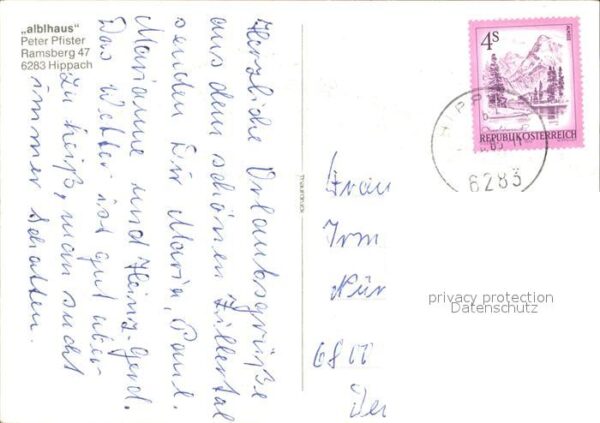 „alblhaus"
Peter Pfister
Ramsberg 47
6283 Hippach
Herzliche Urlaubsgrüße
aus dem schönen Zillertal
senden Dir Maria, Paul.
Marianne und Heinz-Gerd.
Das Wetter ist gut aber
zu heiß, man sucht
immer Schatten.
4S
ALMSEE
REPUBLIK ÖSTERREICH
HIPP
6283
Frau
Irm
Nür
68
privacy protection
Datenschutz